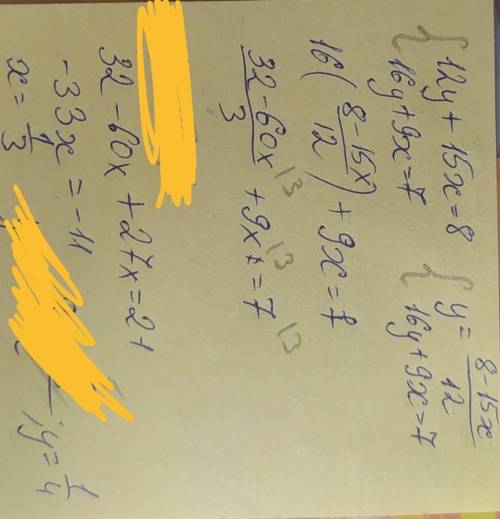 { 12y + 15x = 8
16y + 9x = 7
{ y = (8 - 15x)/12
16y + 9x = 7
16((8 - 15x)/12) + 9x = 7
(32 - 60x)/3 + 9x = 7
32 - 60x + 27x = 21
-33x = -11
x = 1/3
; y = 1/4